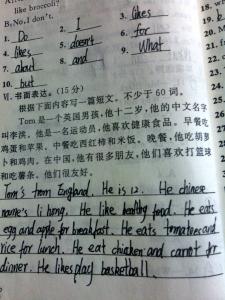 like broccoli?
B: No, I don't.
1. Do 2. I 3. likes
4. likes 5. doesn't 6. for
7. about 8. and 9. What
10. but
Ⅵ. 书面表达。(15分)
根据下面内容写一篇短文。不少于60词。
Tom是一个英国男孩,他十二岁,他的中文名字
叫李洪。他是一名运动员,他喜欢健康食品。早餐吃
鸡蛋和苹果。中餐吃西红柿和米饭。晚餐,他吃胡萝
卜和鸡肉。在中国,他有很多朋友,他们喜欢打篮球
和吃薯条。他们很友好。
Tom's from England. He is 12. He chinese
name's li hong. He like healthy food. He eats
egg and apple for breakfast. He eats tomatoes and
rice for lunch. He eat chicken and carrot for
dinner. He likes play basketball